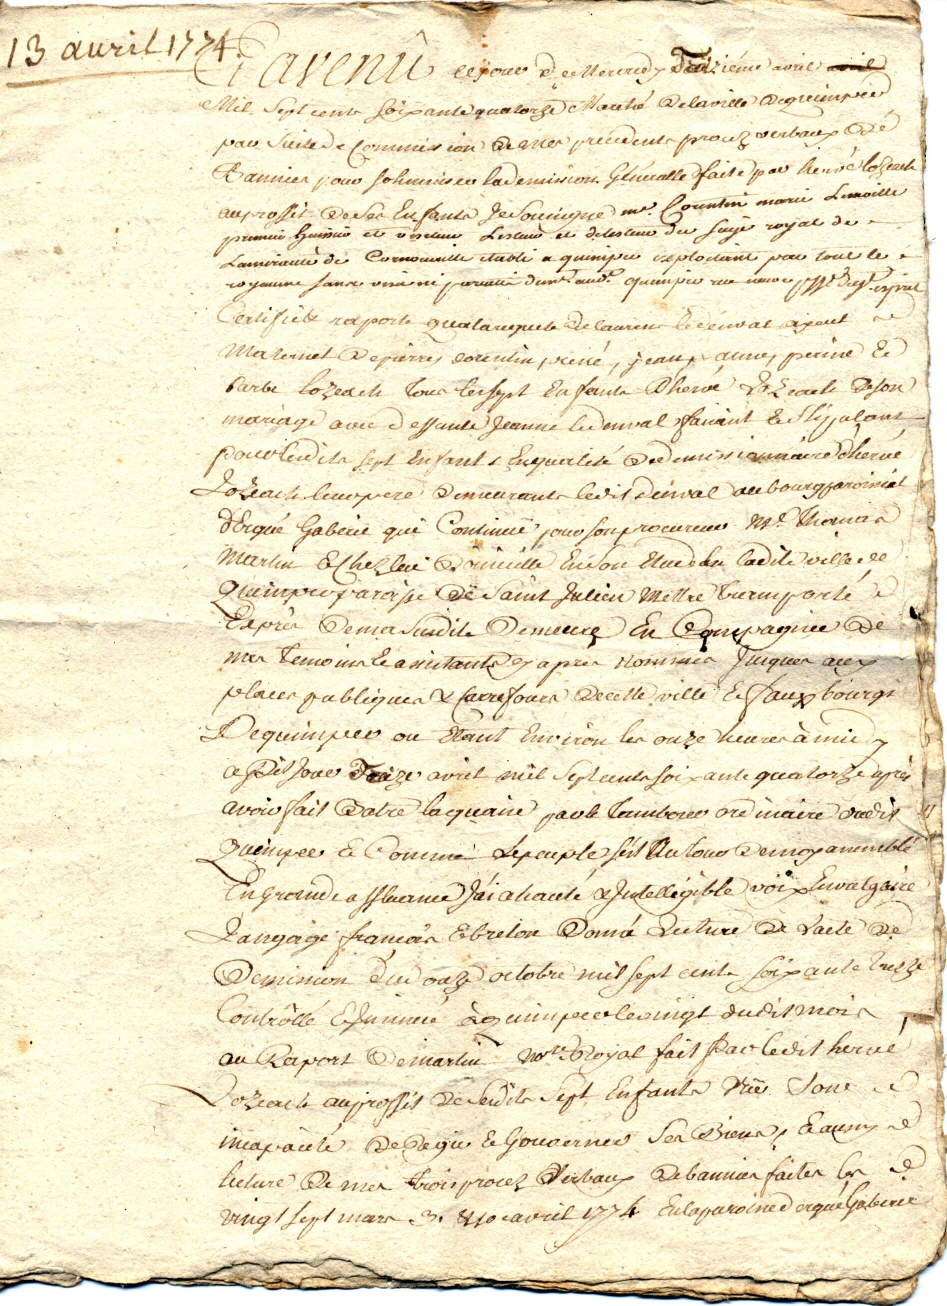 13 avril 1774
Et avenû ce jour de Mercredy Treizième avril
Mil Sept cents soixante quatorze Marché de la ville de quimper
par Suitte de Commission de mes précédents procez verbaux de
Bannies pour solemniser la demission Généralle faite par hervé lozeach
au proffit de Ses Enfants Je Soussigné me. Corentin marie Lemoille
premier huissier et visiteur Lesteur et délesteur du siège royal de
Lamirauté de Cornouaille établi a quimper exploitant par tout le
royaume sans visa ni pareatis quimper rue neuve
Certifie & raporte qua la requete de laurens le denval ayeul
Maternel de pierre, corentin, rené, jean, anne, perine &
barbe lozeach tous les sept Enfants d'hervé Lozeach de son
mariage avec deffunte Jeanne le denval faisant & Stipulant
pour lesdits sept Enfants En qualité de demissionnaire d'hervé
Lozeach leur pere demeurants ledit denval au bourg paroissial
d'Ergué Gaberic qui Continue pour son procureur Me. Thomas
Martin & Chez lui domicille En son Etude en ladite ville de
Quimper paroisse de Saint Julien Mettre transporté
Exprès de ma Susdite Demeure En Compagnie de
mes temoins & assistants cy après nommés Jusques aux
places publiques & Carrefours de cette ville & faux bourgs
De quimper ou Etant Environ les onze heures à midy
cedit Jour Treize avril mil sept cents soixante quatorze après
avoir fait Batre la quaisse par le tambour ordinaire dudit
Quimper & Comme Le peuple s'est Autour de moy assemblé
En grande affluence J'ai a haute & Intelligible voix En vulgaire
Langage français & breton Donné Lecture de L'acte de
Demission du onze octobre mil sept cents soixante treize
Controllé & Insinué à quimper le vingt dudit mois
au Raport de martin nore. Royal fait par ledit hervé
Lozeach au proffit de Sesdits Sept Enfants Vûe Son
incapacité de Regir & Gouverner Ses Biens, & aussy
lecture de mes trois procez Verbaux de bannies faites les
vingt sept mars 3. & 10 avril 1774 En la paroisse d'ergué Gaberic